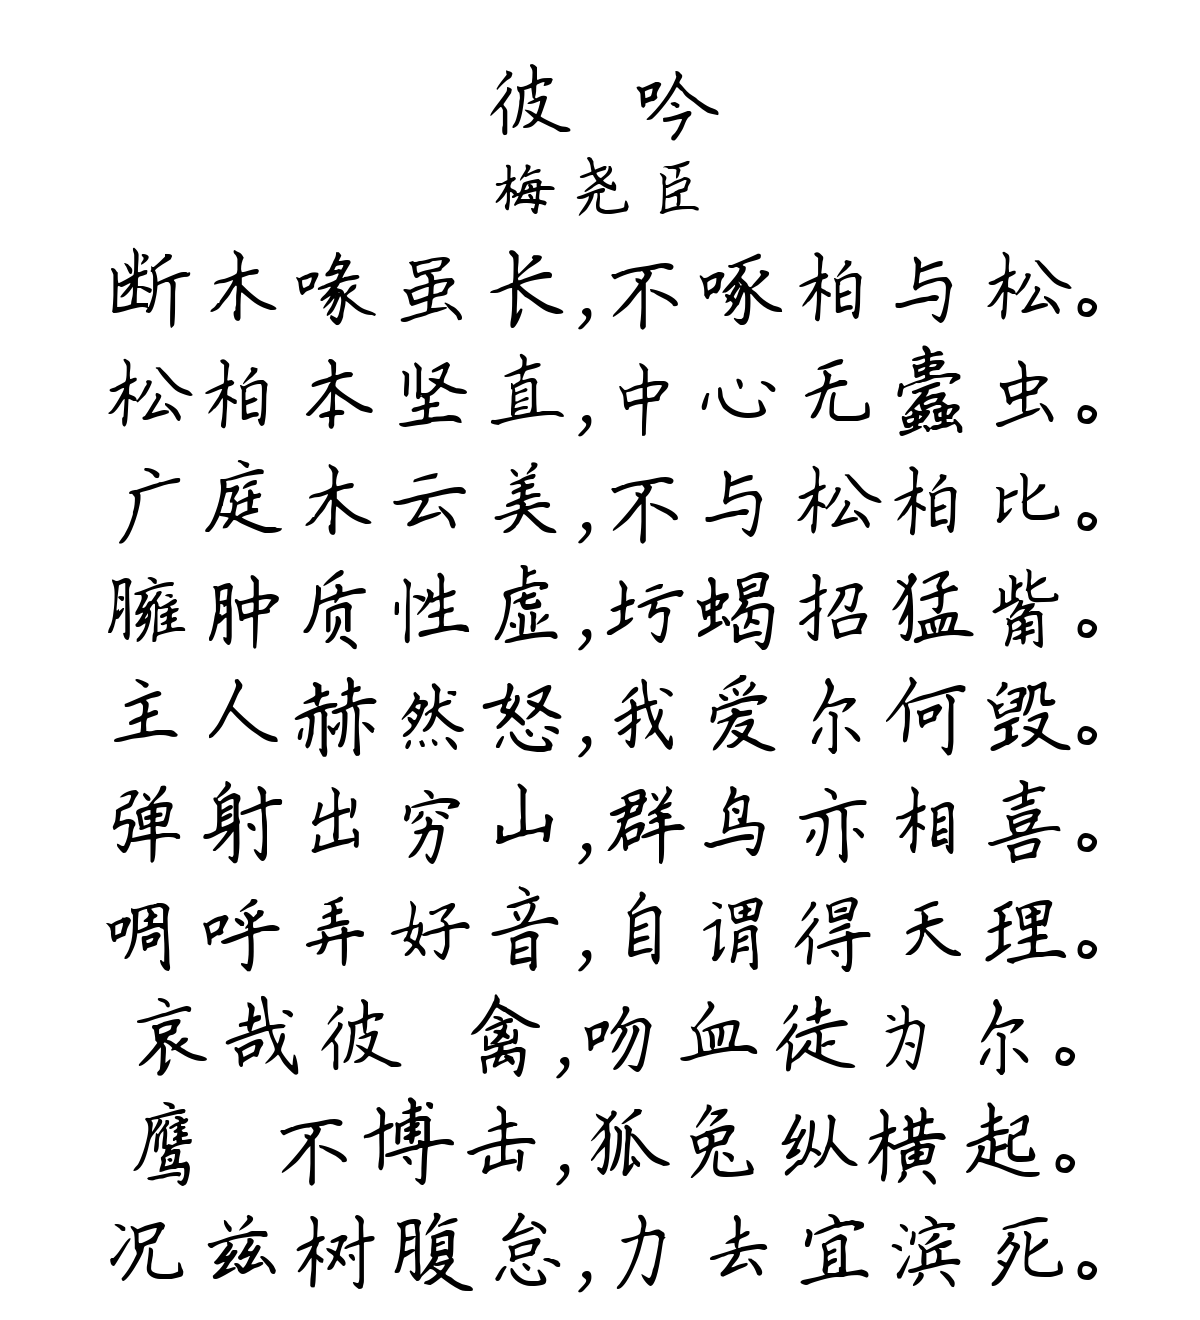 彼 吟
梅尧臣
断木喙虽长,不啄柏与松。
松柏本坚直,中心无蠹虫。
广庭木云美,不与松柏比。
臃肿质性虚,圬蝎招猛觜。
主人赫然怒,我爱尔何毁。
弹射出穷山,群鸟亦相喜。
啁呼弄好音,自谓得天理。
哀哉彼 禽,吻血徒为尔。
鹰 不博击,狐兔纵横起。
况兹树腹怠,力去宜滨死。